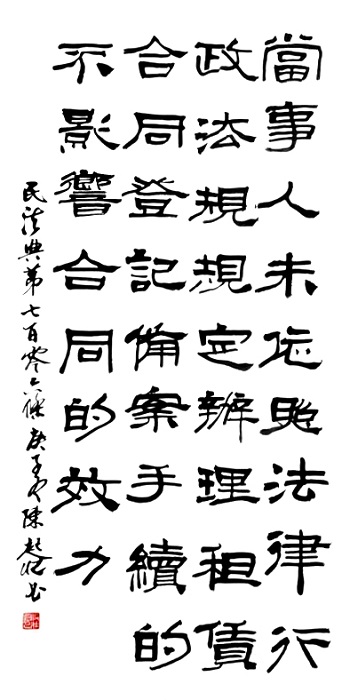 當事人未依照法律行
政法規規定辦理租賃
合同登記備案手續的
不影響合同的效力
民法典第七百零六條 庚子 陳 書